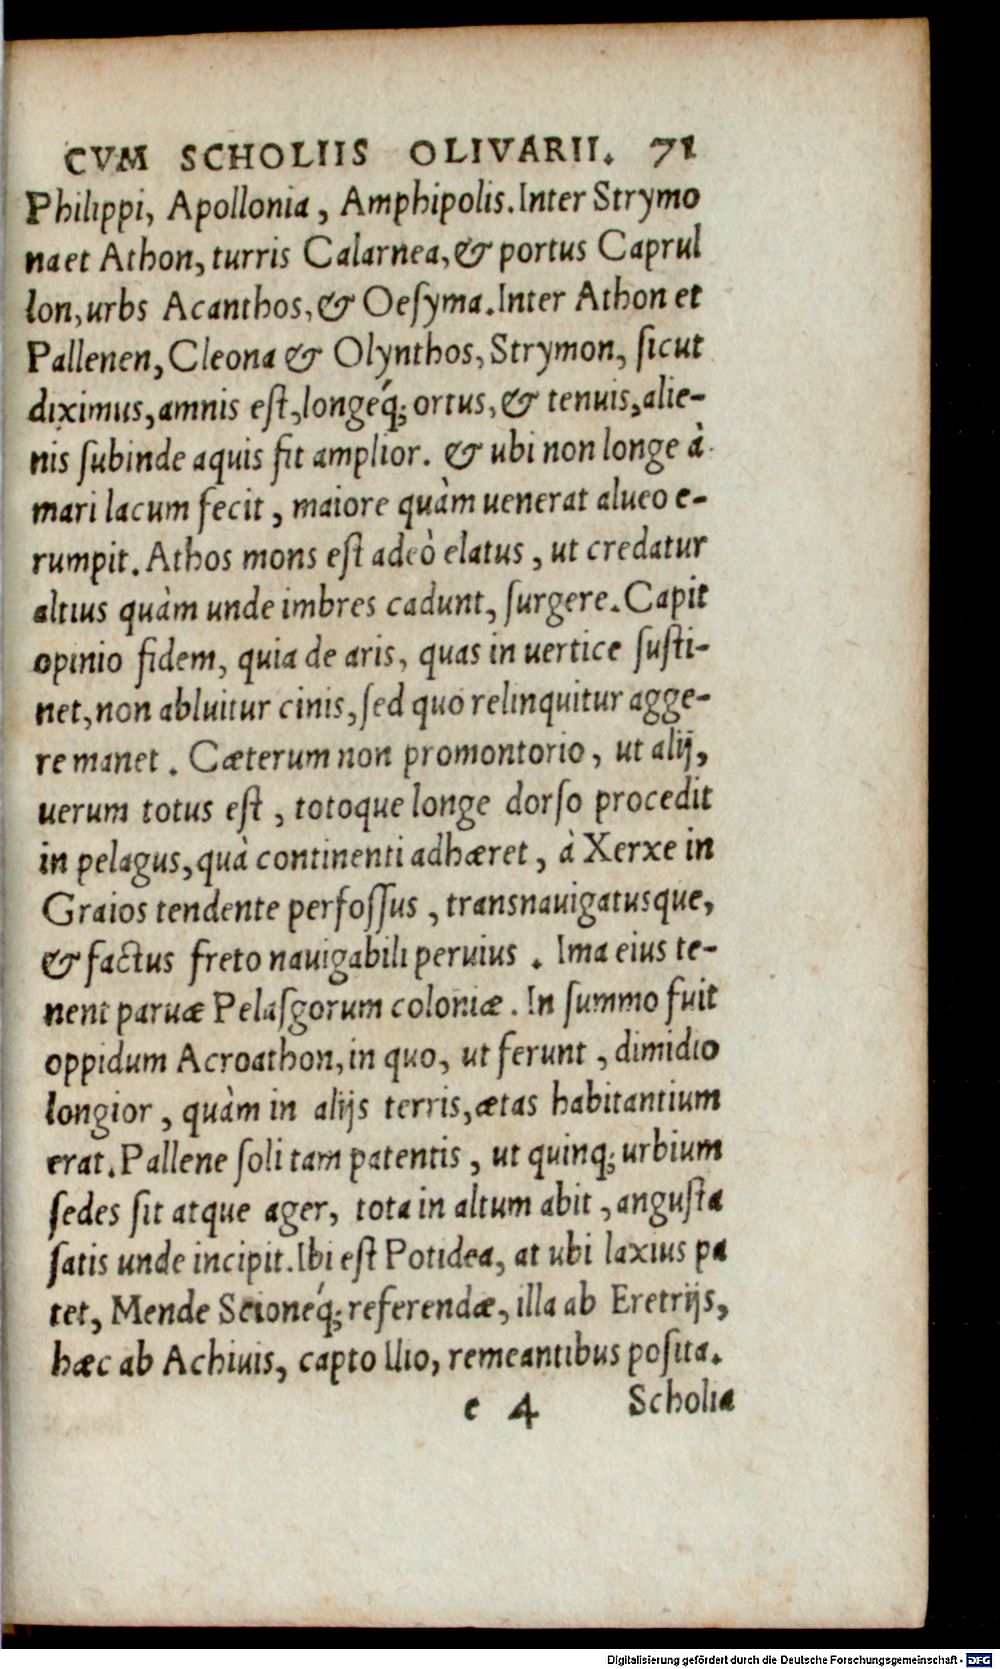 CVM SCHOLIIS OLIVARII. 71
Philippi, Apollonia, Amphipolis. Inter Strymo
na et Athon, turris Calarnea, & portus Caprul
lon, urbs Acanthos, & Oeſyma. Inter Athon et
Pallenen, Cleona & Olynthos, Strymon, ſicut
diximus, amnis eſt, longeq́; ortus, & tenuis, alie-
nis ſubinde aquis fit amplior. & ubi non longe à
mari lacum fecit, maiore quàm uenerat alueo e-
rumpit. Athos mons eſt adeò elatus, ut credatur
altius quàm unde imbres cadunt, ſurgere. Capit
opinio fidem, quia de aris, quas in uertice ſuſti-
net, non abluitur cinis, ſed quo relinquitur agge-
re manet. Cæterum non promontorio, ut alij,
uerum totus eſt, totoque longe dorſo procedit
in pelagus, quà continenti adhæret, à Xerxe in
Graios tendente perfoſſus, transnauigatusque,
& factus freto nauigabili peruius. Ima eius te-
nent paruæ Pelaſgorum coloniæ. In ſummo fuit
oppidum Acroathon, in quo, ut ferunt, dimidio
longior, quàm in alijs terris, ætas habitantium
erat. Pallene ſoli tam patentis, ut quinq; urbium
ſedes ſit atque ager, tota in altum abit, anguſta
ſatis unde incipit. Ibi eſt Potidea, at ubi laxius pa
tet, Mende Scioneq́; referendæ, illa ab Eretrijs,
hæc ab Achiuis, capto Ilio, remeantibus poſita.
e 4 Scholia
Digitalisierung gefördert durch die Deutsche Forschungsgemeinschaft - DFG